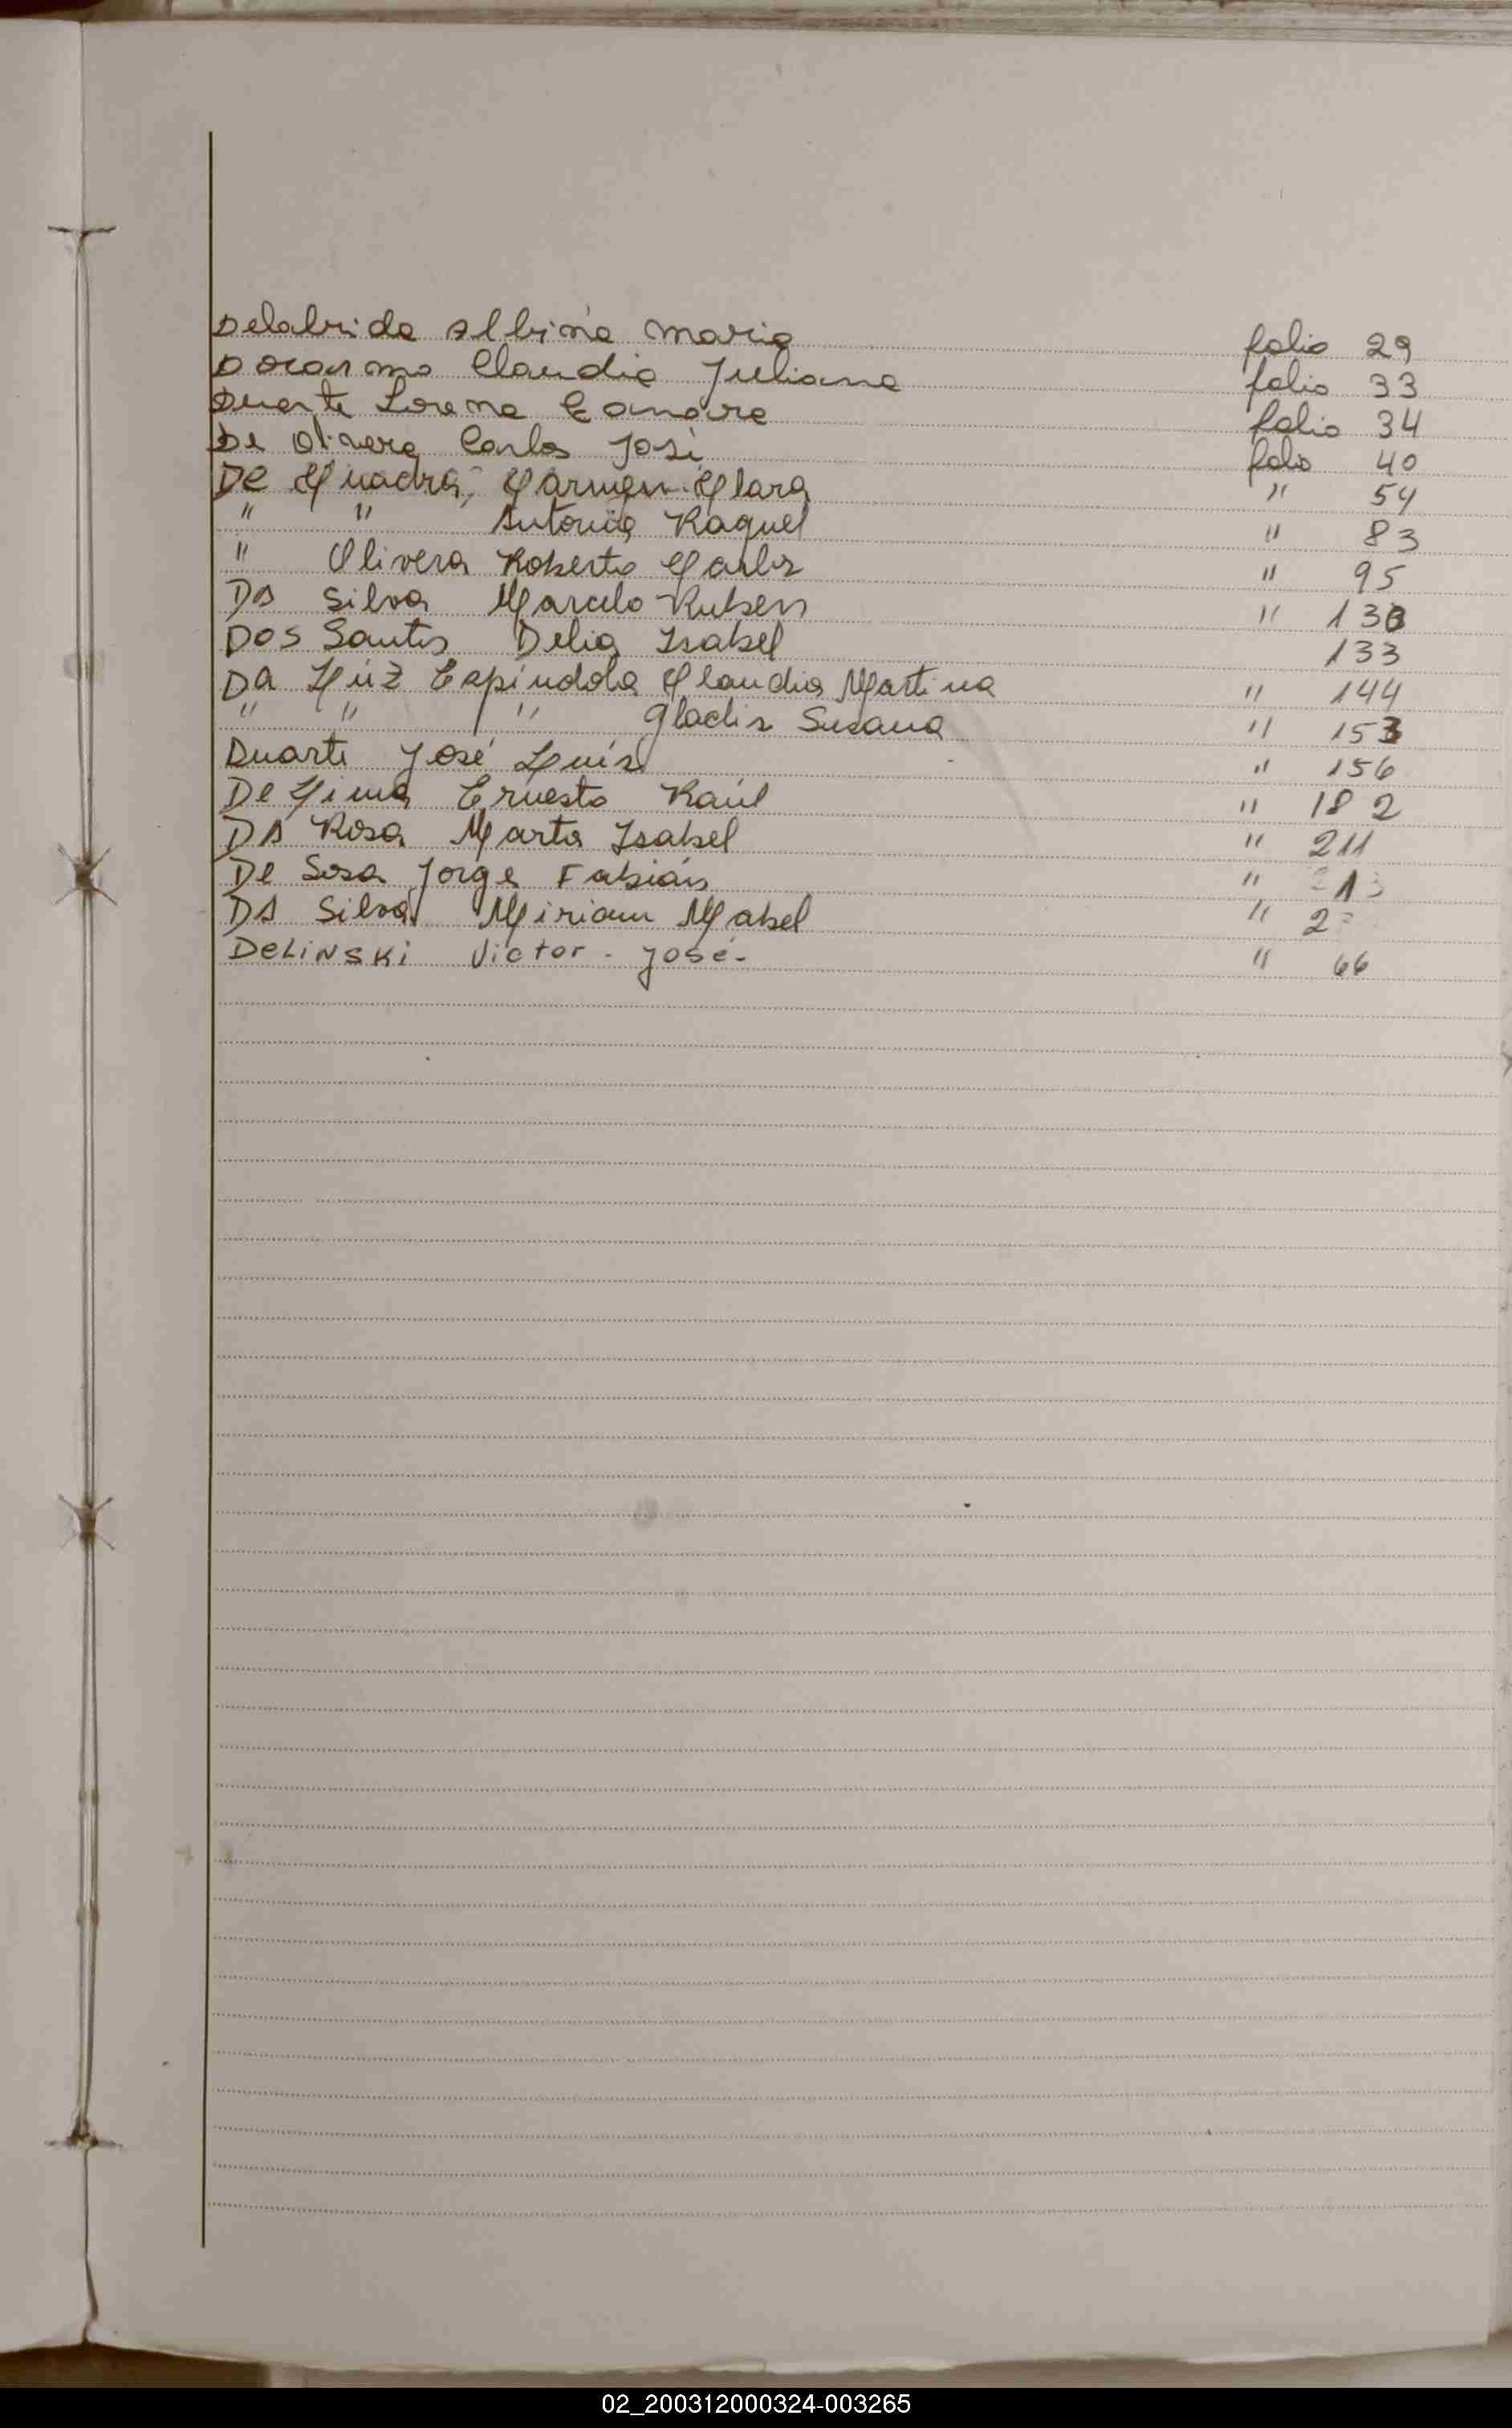 Delabrida Albina Maria folio 29
Claudia Juliana folio 33
Duarte Lorena folio 34
De Olivera Carlos José folio 40
De Cuadra, Carmen Clara " 54
" " Antonia Raquel " 83
" Olivera Roberto Carlos " 95
DA Silva Marcelo Ruben " 130
DOS Santos Delia Isabel 133
Da Luz Espíndola Claudia Martina " 144
" " " Gladis Susana " 153
Duarte José Luís " 156
De Lima Ernesto Raúl " 182
DA Rosa Marta Isabel " 211
De Sosa Jorge Fabián "
DA Silva Miriam Mabel "
DELINSKI Victor - José- " 66
02_200312000324-003265